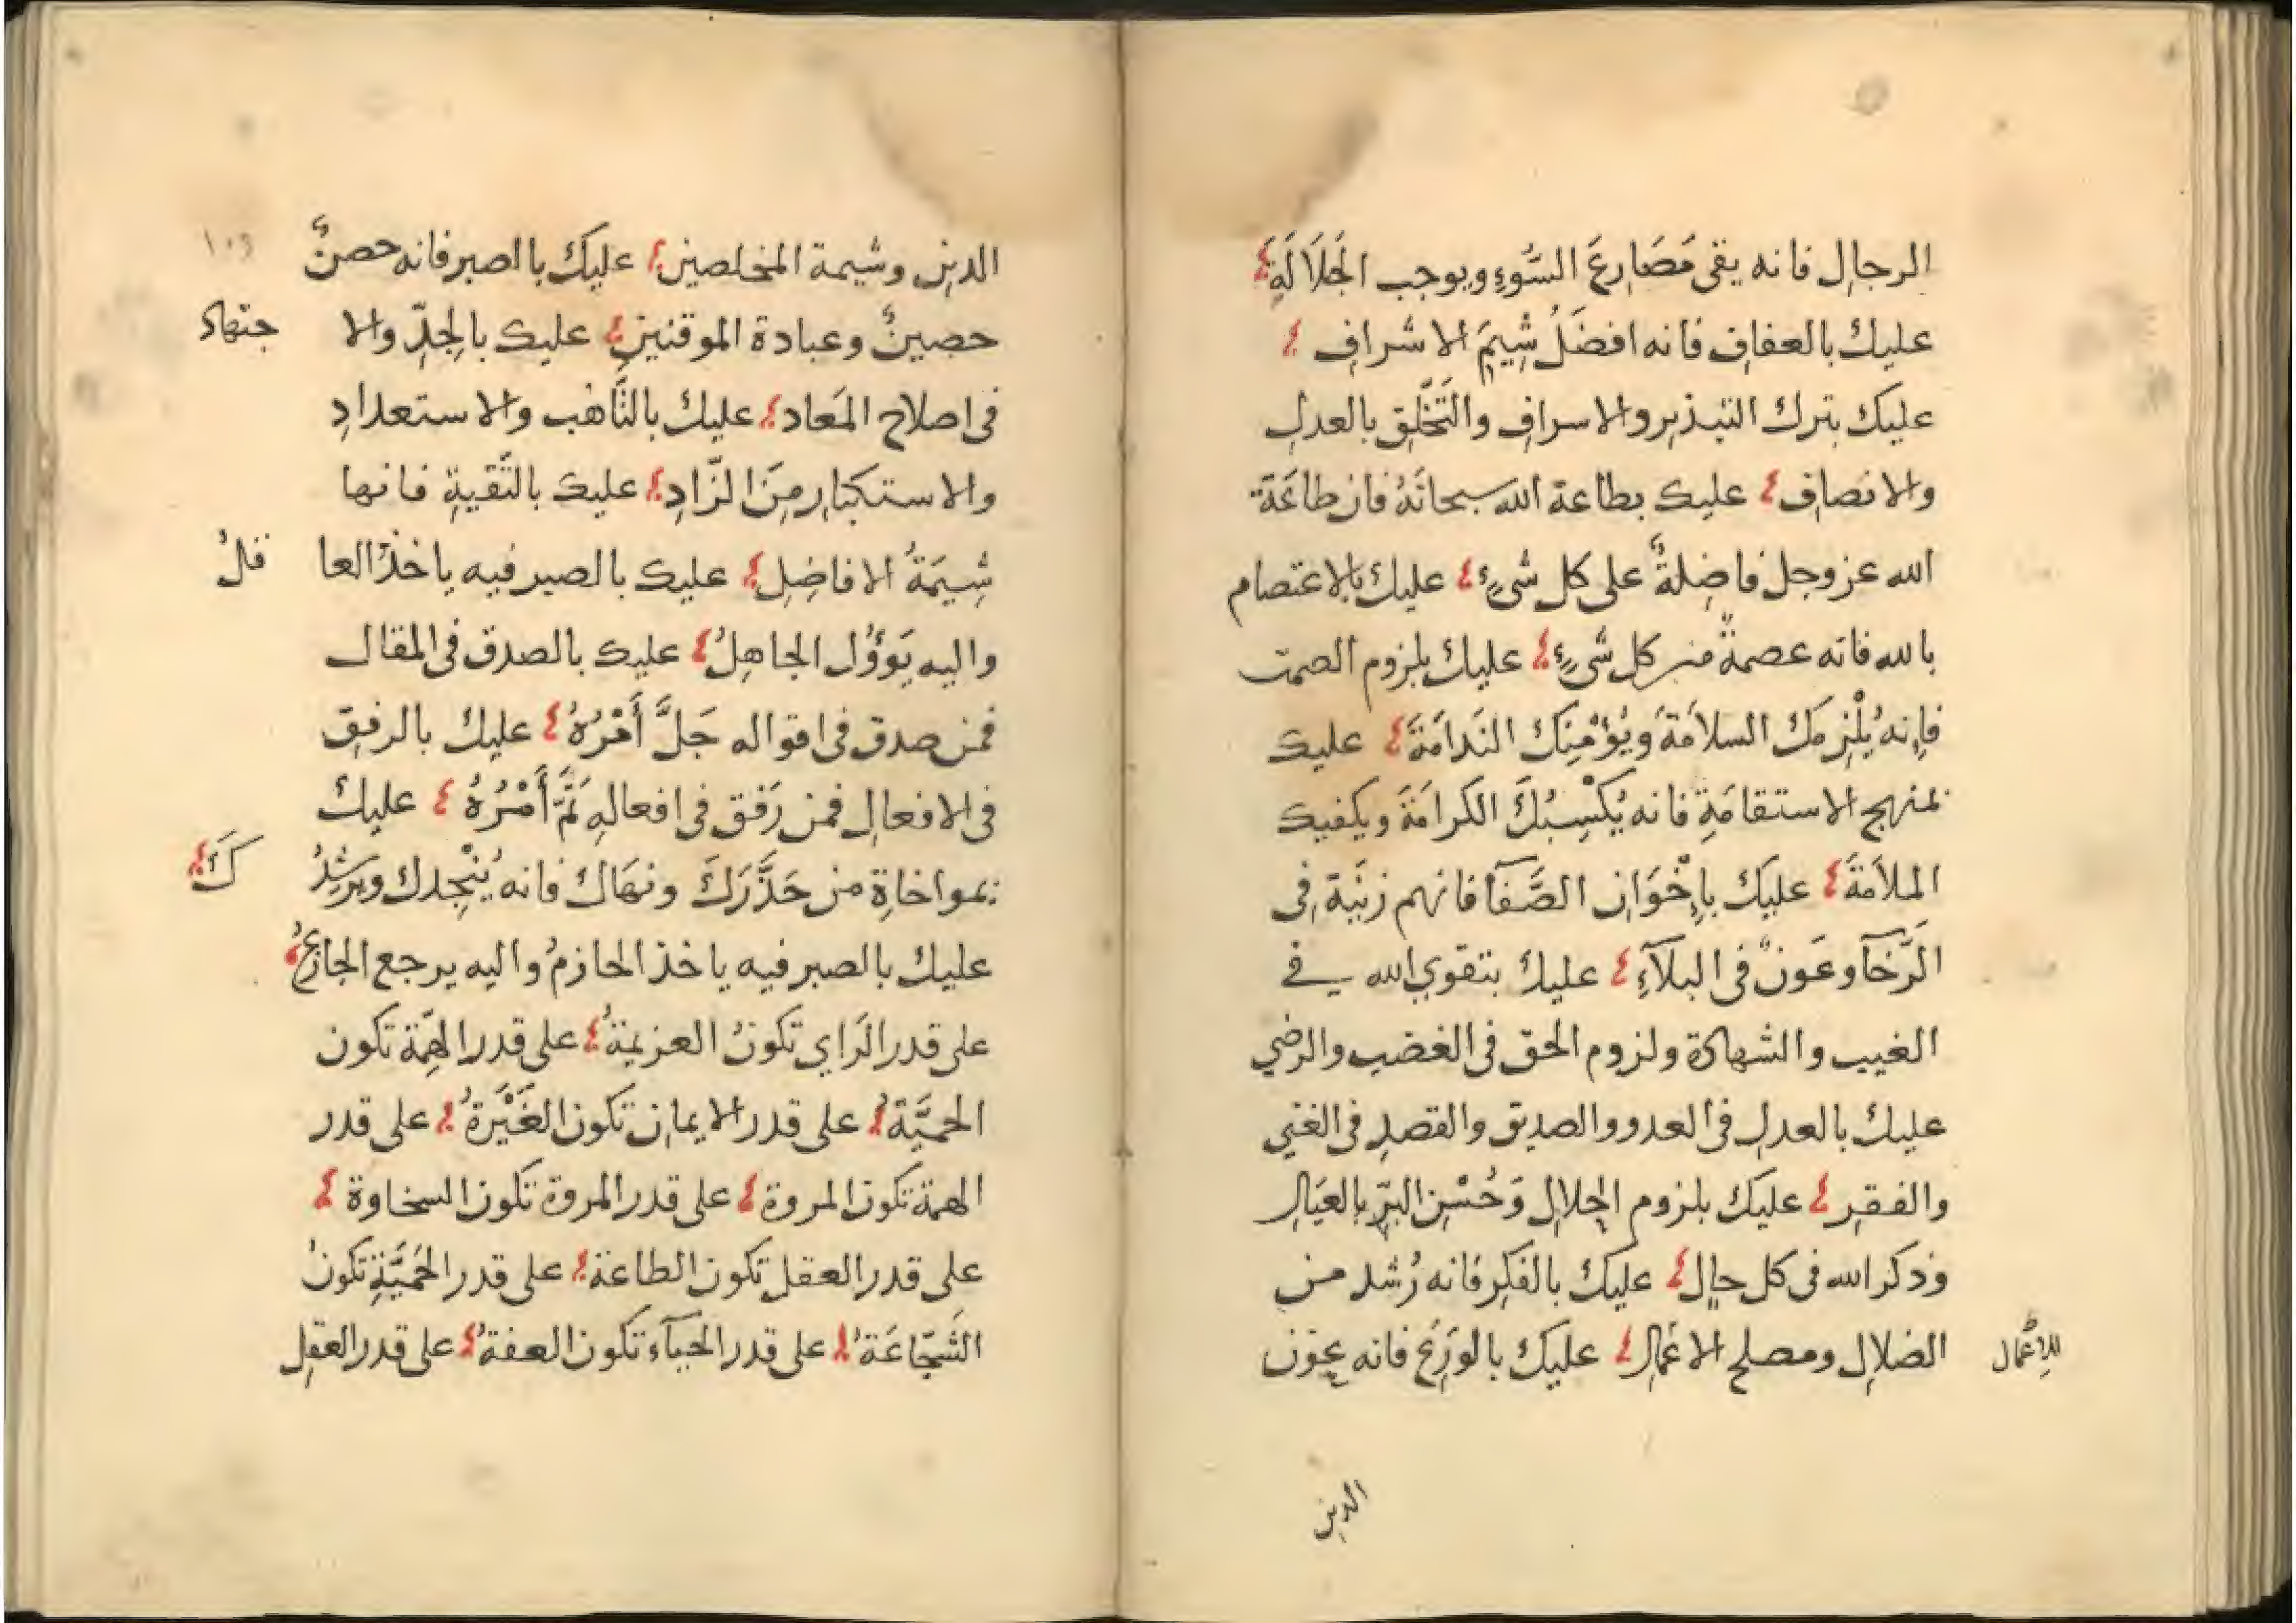 الرجال فانه يقى مَصَارِعَ السُّوءِ ويوجب الجَلَالَةِ
عليك بالعفاف فانه افضَلُ شِيَمِ الاشراف
عليك بترك التبذير والاسراف والتَّخَلُّق بالعدل
والانصاف عليك بطاعة الله سبحانَهُ فان طاعَةَ
الله عز وجل فاضِلةٌ على كل شىءٍ عليك بالاعتصام
بالله فانه عصمةٌ من كل شىءٍ عليك بلزوم الصمت
فإنه يُلْزِمَكَ السلامَةَ وَيُؤْمِنِكَ النَدامَةَ عليك
بمنهج الاستقامَةِ فانه يُكْسِبُكَ الكرامَةَ ويكفيك
الملامَةَ عليَك باِخْوَانِ الصَّفآ فانهم زِيَنة فِى
الَرَّخآ وعَونٌ فى البلآءِ عليك بتقوي الله فى
الغيب والشهادة ولزوم الحق فى الغضب والرضي
عليك بالعدل فى العدو والصديق والقصدِ فى الغني
والفقرِ عليك بلزوم الحِلال وَحُسْنِ البِّرِ بالعيَالِ
وَذكر الله فى كل حالٍ عليك بالفكِر فانه رُشد من
الضلال ومصلح الاعمالِ عليك بالوَرَع فانه عَوْن
للاعمال
الدين
الدين وشيمة المخلصين عليَك بالصبر فانه حصنٌ
١٠٩
حصينٌ وعبادة الموقنين عليك بالجِدِّ والا جتهاد
فى اصلاح المَعاد عليك بالتَّاهُب والاستعدادِ
والاستكثار مِنَ الزَّادِ عليك بالتَّقيةِ فانها
شِيَمةُ الافاضِلِ عليك بالصبر فيه ياخذُ العا قلُ
واليه يَؤوُل الجاهِلُ عليك بالصدق فى المقال
فمن صدق فى اقواله جَلَّ أَمْرُهُ عليك بالرفق
فى الافعال فمن رَفق فى افعالهِ تَمَّ أَمْرُهُ عليك
بمواخاةِ من حَذَّرَكَ ونهَاك فانه يُنْجِدك ويرشِدُ كَ
عليك بالصبر فيه ياخذ الحازمُ واليه يرجع الجازعُ
على قدر الَراي تكونُ العزيمةُ على قدر الهِمّة تكون
الحميَّةُ على قدر الايمان تكون الغَيْرَةُ على قدر
الهمة تكون المروة على قدر المروة تكون السخاوة
على قدر العقل تكون الطاعة على قدر الحَمِيَّةِ تكونُ
الشَجّاعَةُ على قدر الحيآء تكون العفةُ على قدر العقِل